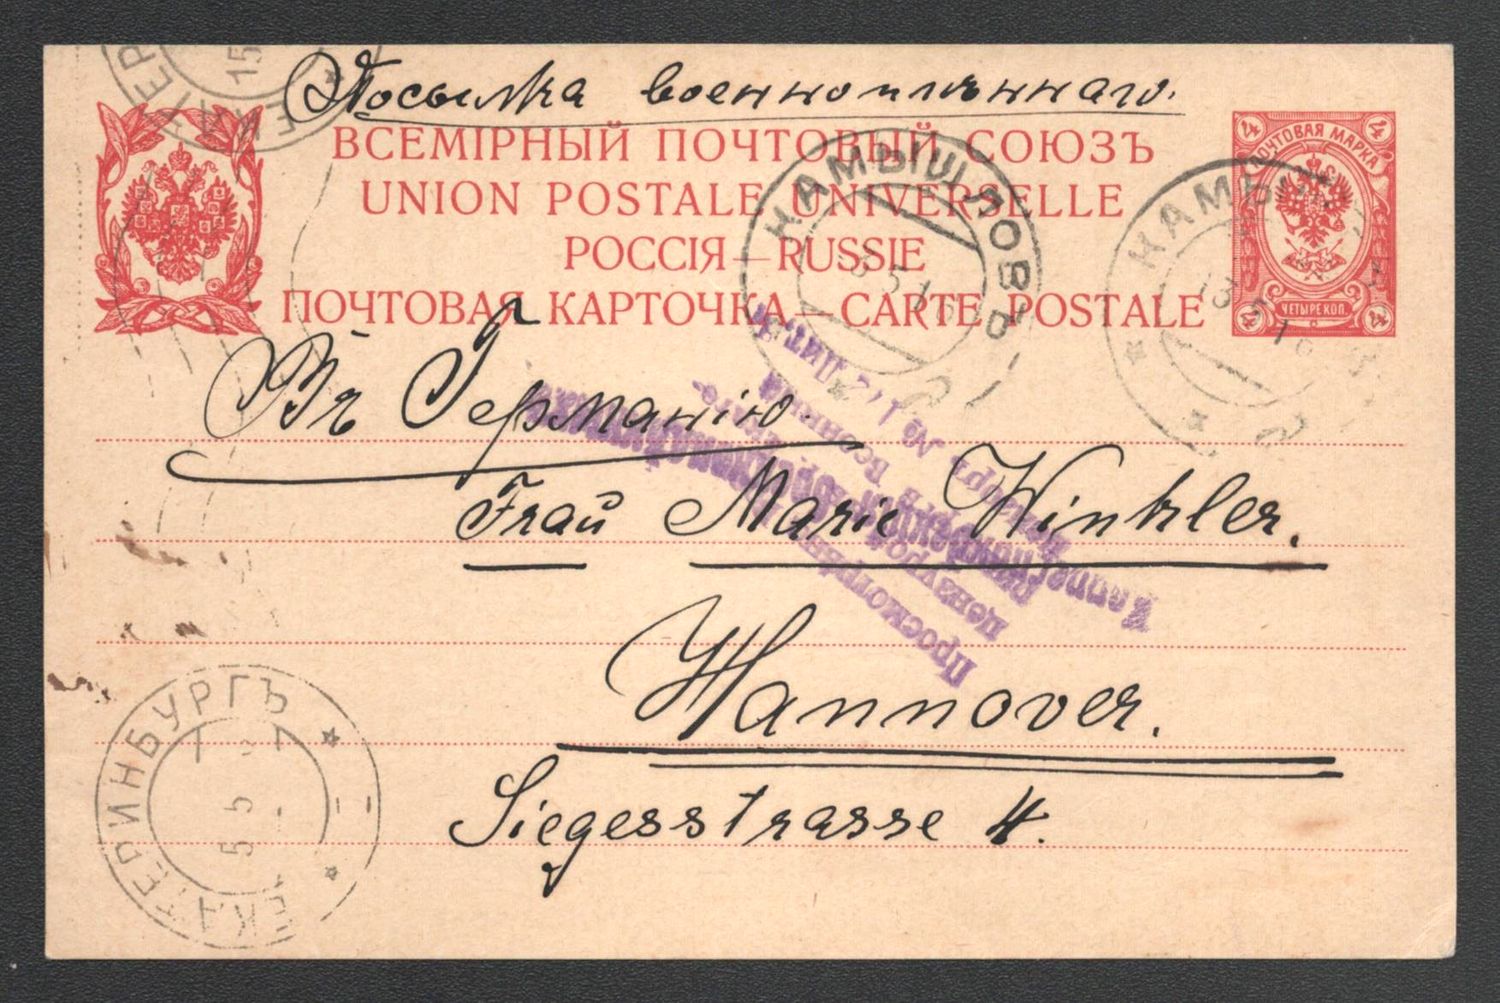 Посылка военноплѣннаго.
ВСЕМІРНЫЙ ПОЧТОВЫЙ СОЮЗЪ
UNION POSTALE UNIVERSELLE
РОССІЯ — RUSSIE
ПОЧТОВАЯ КАРТОЧКА — CARTE POSTALE
4 4
ПОЧТОВАЯ МАРКА
ЧЕТЫРЕ КОП.
4 4
КАМЫШЛОВЪ
КАМЫ
13
ЕКАТЕР
15
Въ Германію.
Frau Marie Winkler.
Hannover.
Siegesstrasse 4.
Просмотрѣн
Военный
ЕКАТЕРИНБУРГЪ
5 5